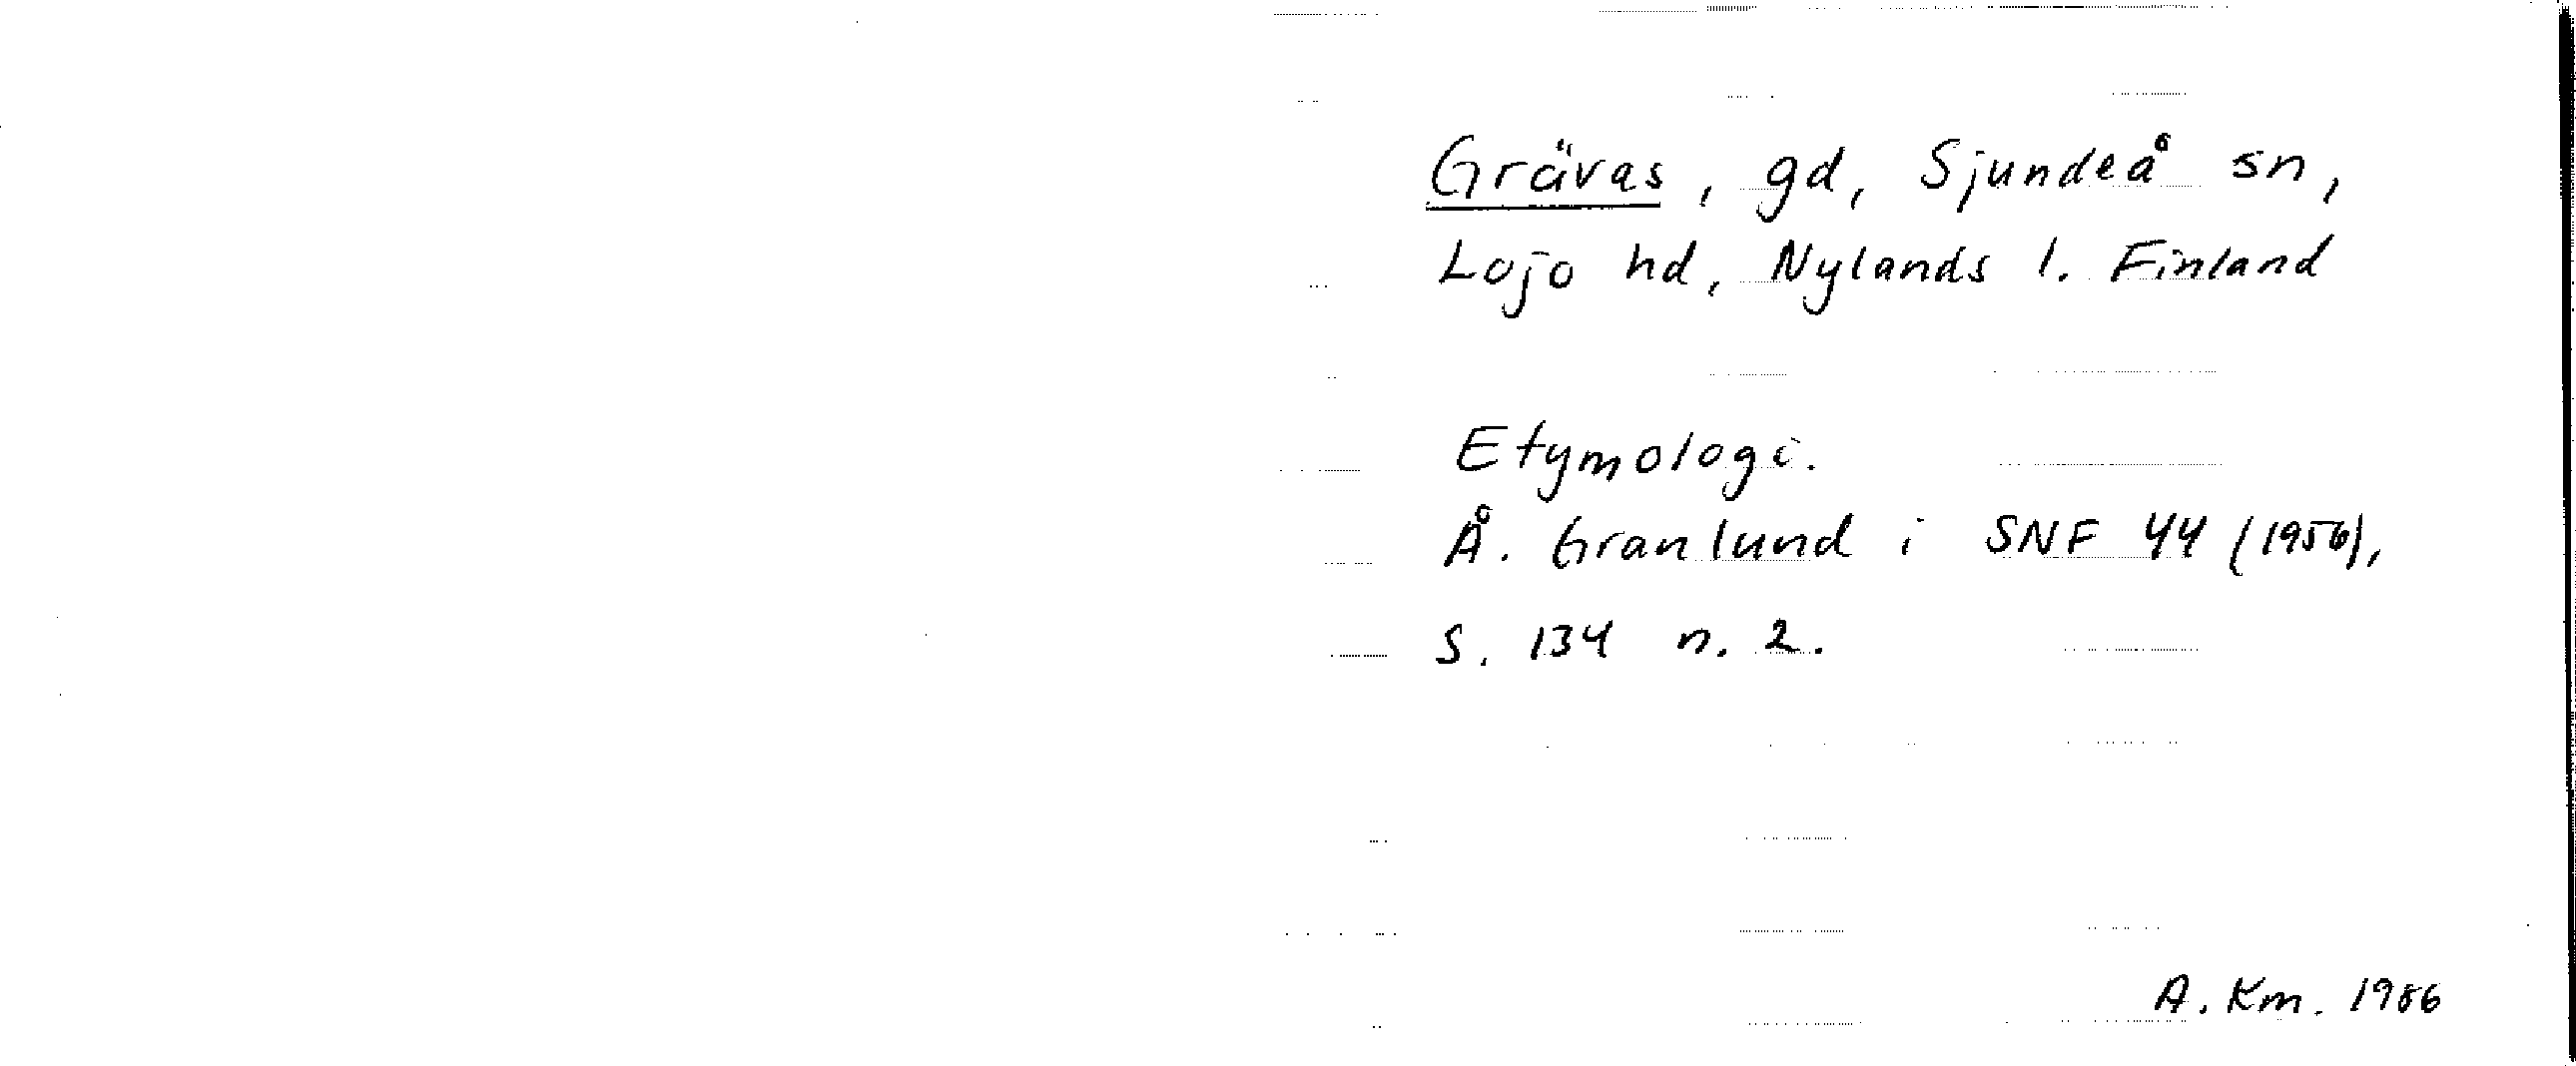 Grävas, gd, Sjundeå sn,
Lojo hd, Nylands l. Finland
Etymologi.
Å. Granlund i SNF 44 (1956),
S. 134 n. 2.
A. Km. 1986